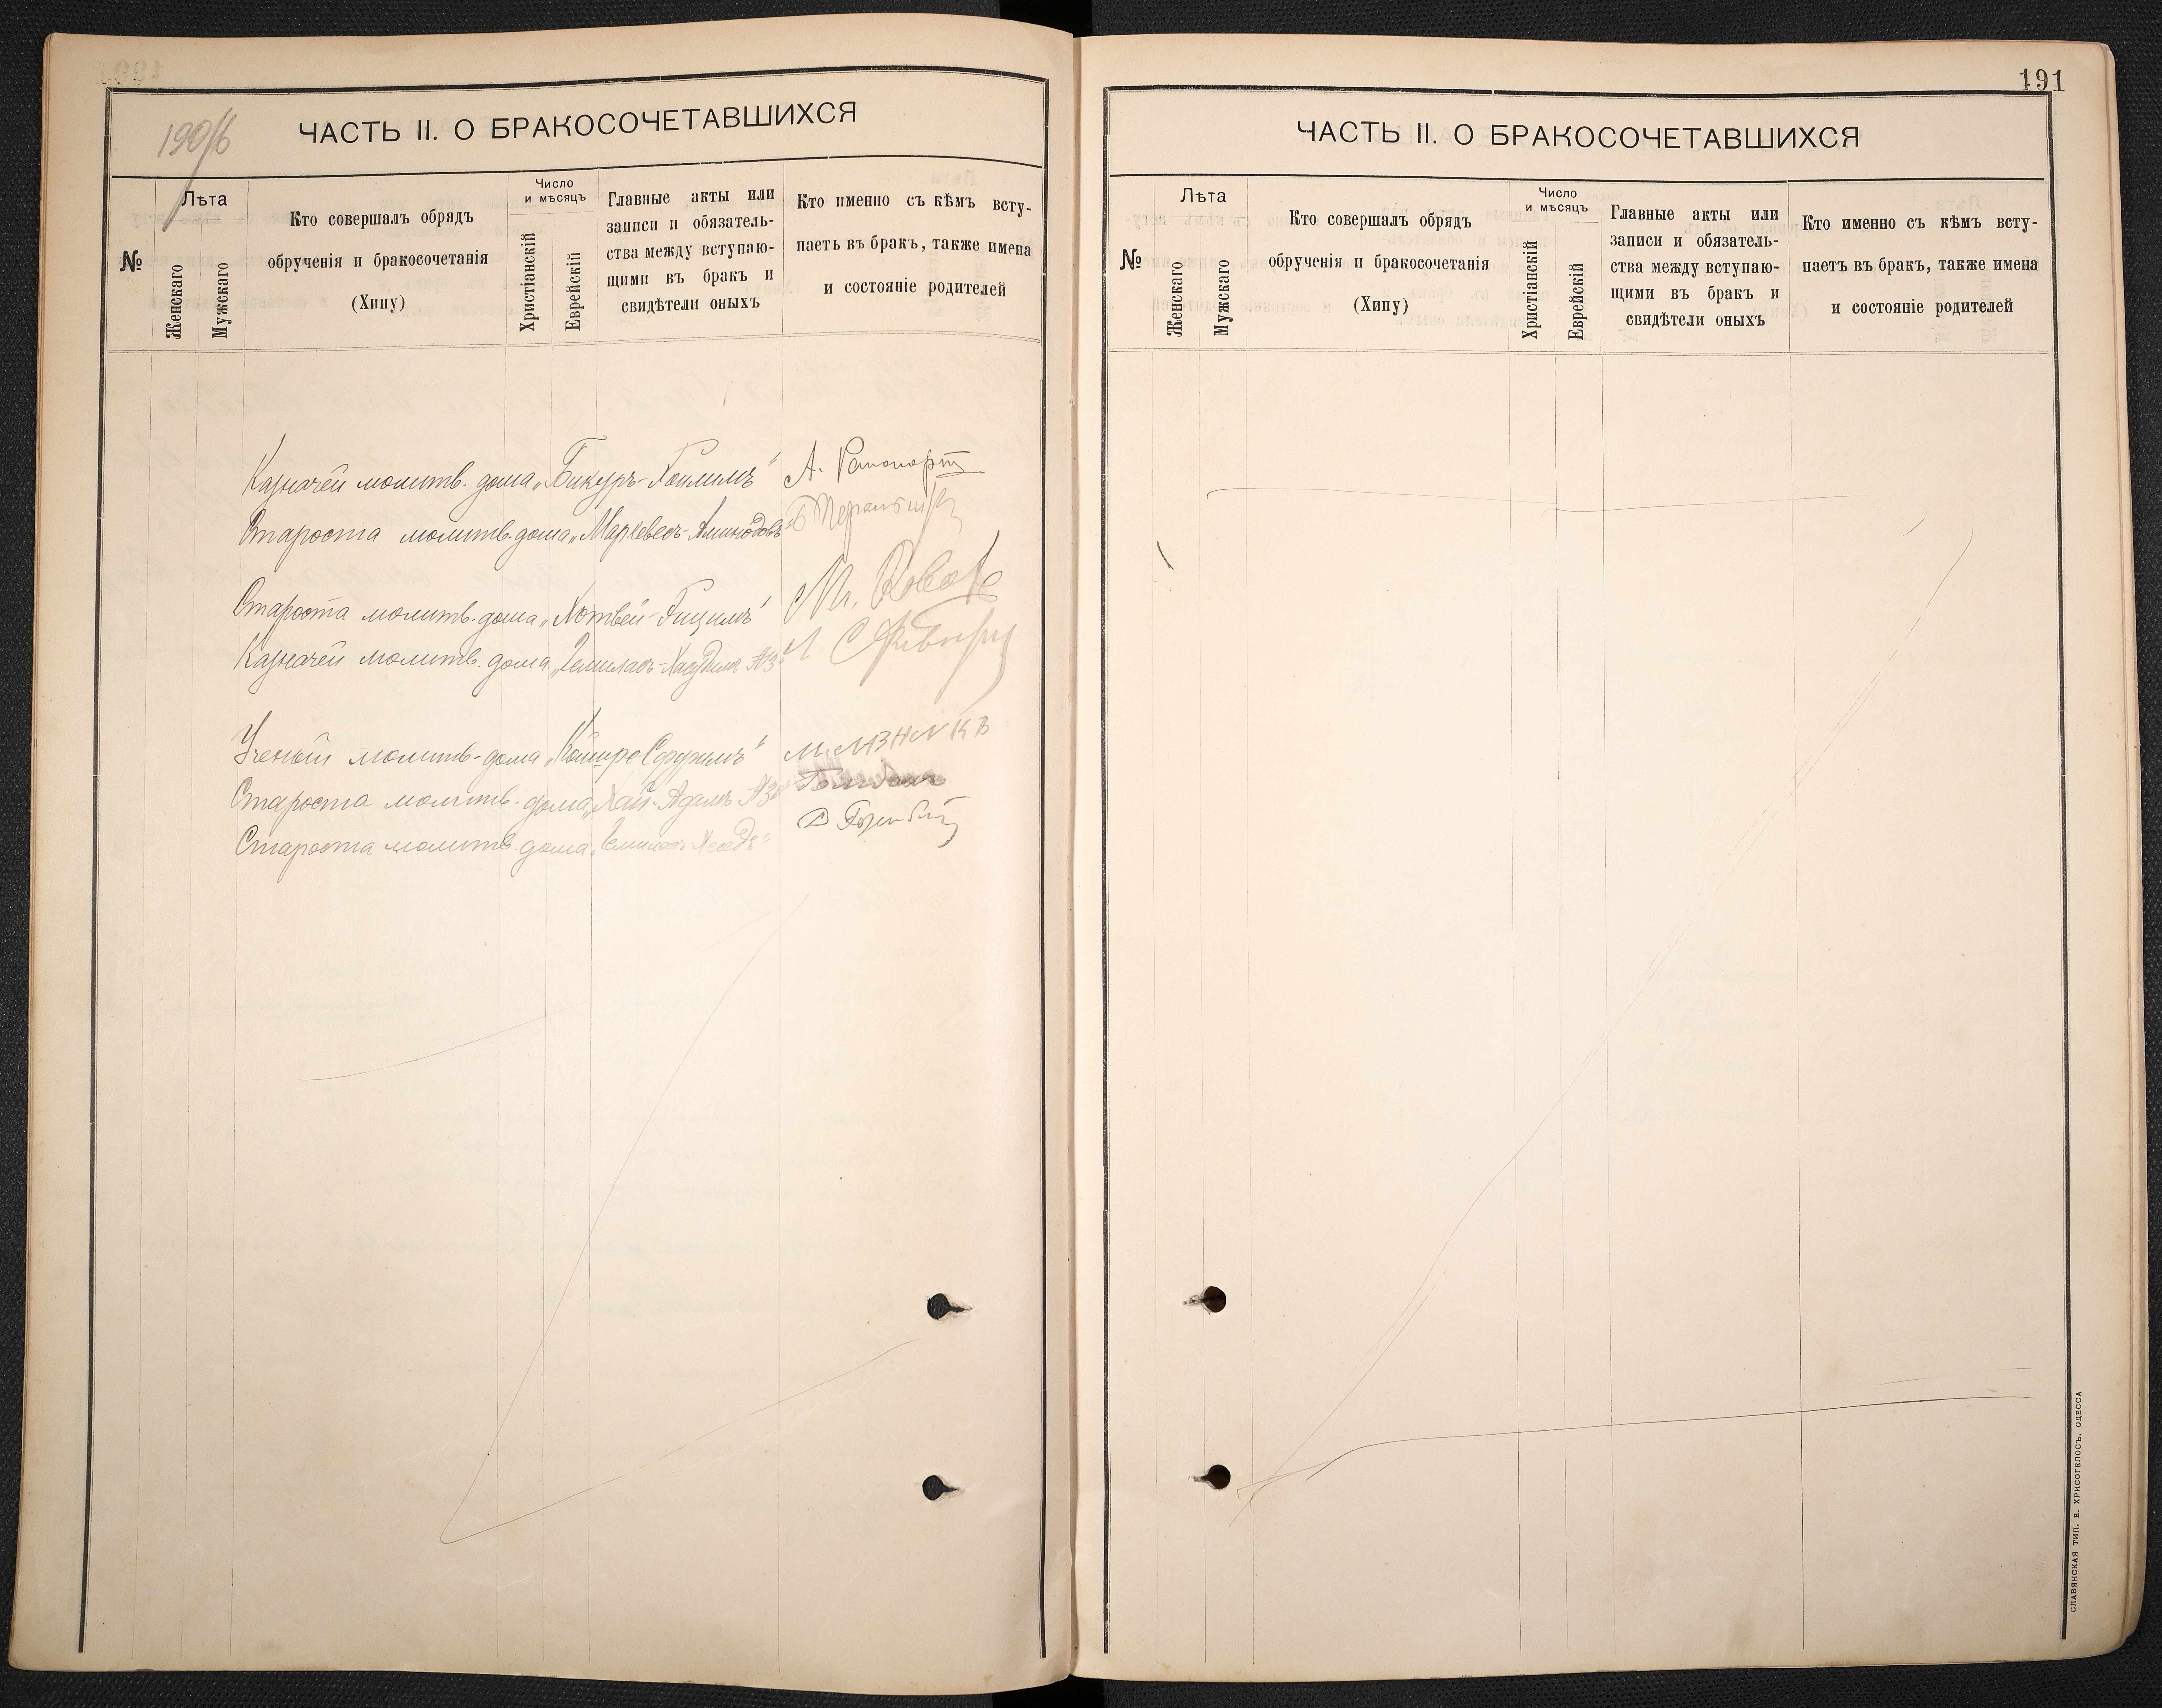 190/б
ЧАСТЬ II. О БРАКОСОЧЕТАВШИХСЯ
№
Лѣта
Женскаго
Мужскаго
Кто совершалъ обрядъ
обрученія и бракосочетанія
(Хипу)
Число
и мѣсяцъ
Христіанскій
Еврейскій
Главные акты или
записи и обязатель-
ства между вступаю-
щими въ бракъ и
свидѣтели оныхъ
Кто именно съ кѣмъ всту-
паетъ въ бракъ, также имена
и состояніе родителей
Казначей молитв. дома „Бикуръ-Хойлимъ" А. Рапопортъ
Староста молитв. дома
Староста молитв. дома
Казначей молитв. дома „Гемиласъ-Хасудимъ
Ученый молитв. дома
Староста молитв. дома „Хай-Адамъ
Староста молитв. дома „Гемилосъ Хеседъ"
191
ЧАСТЬ II. О БРАКОСОЧЕТАВШИХСЯ
№
Лѣта
Женскаго
Мужскаго
Кто совершалъ обрядъ
обрученія и бракосочетанія
(Хипу)
Число
и мѣсяцъ
Христіанскій
Еврейскій
Главные акты или
записи и обязатель-
ства между вступаю-
щими въ бракъ и
свидѣтели оныхъ
Кто именно съ кѣмъ всту-
паетъ въ бракъ, также имена
и состояніе родителей
СЛАВЯНСКАЯ ТИП. Е. ХРИСОГЕЛОСЪ, ОДЕССА